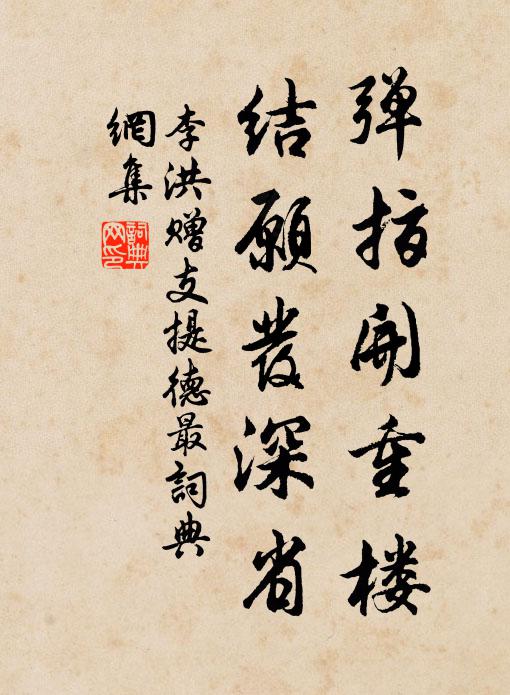 弹指开重楼
结愿发深省
李洪赠支提德最詞典
網集
詞典
网印